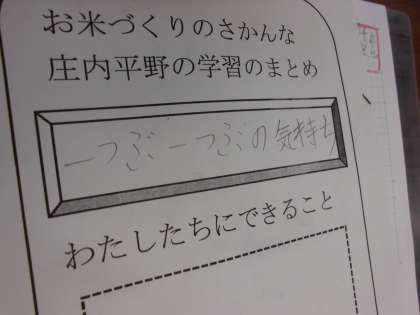 お米づくりのさかんな
庄内平野の学習のまとめ
一つぶ一つぶの気持ち
わたしたちにできること